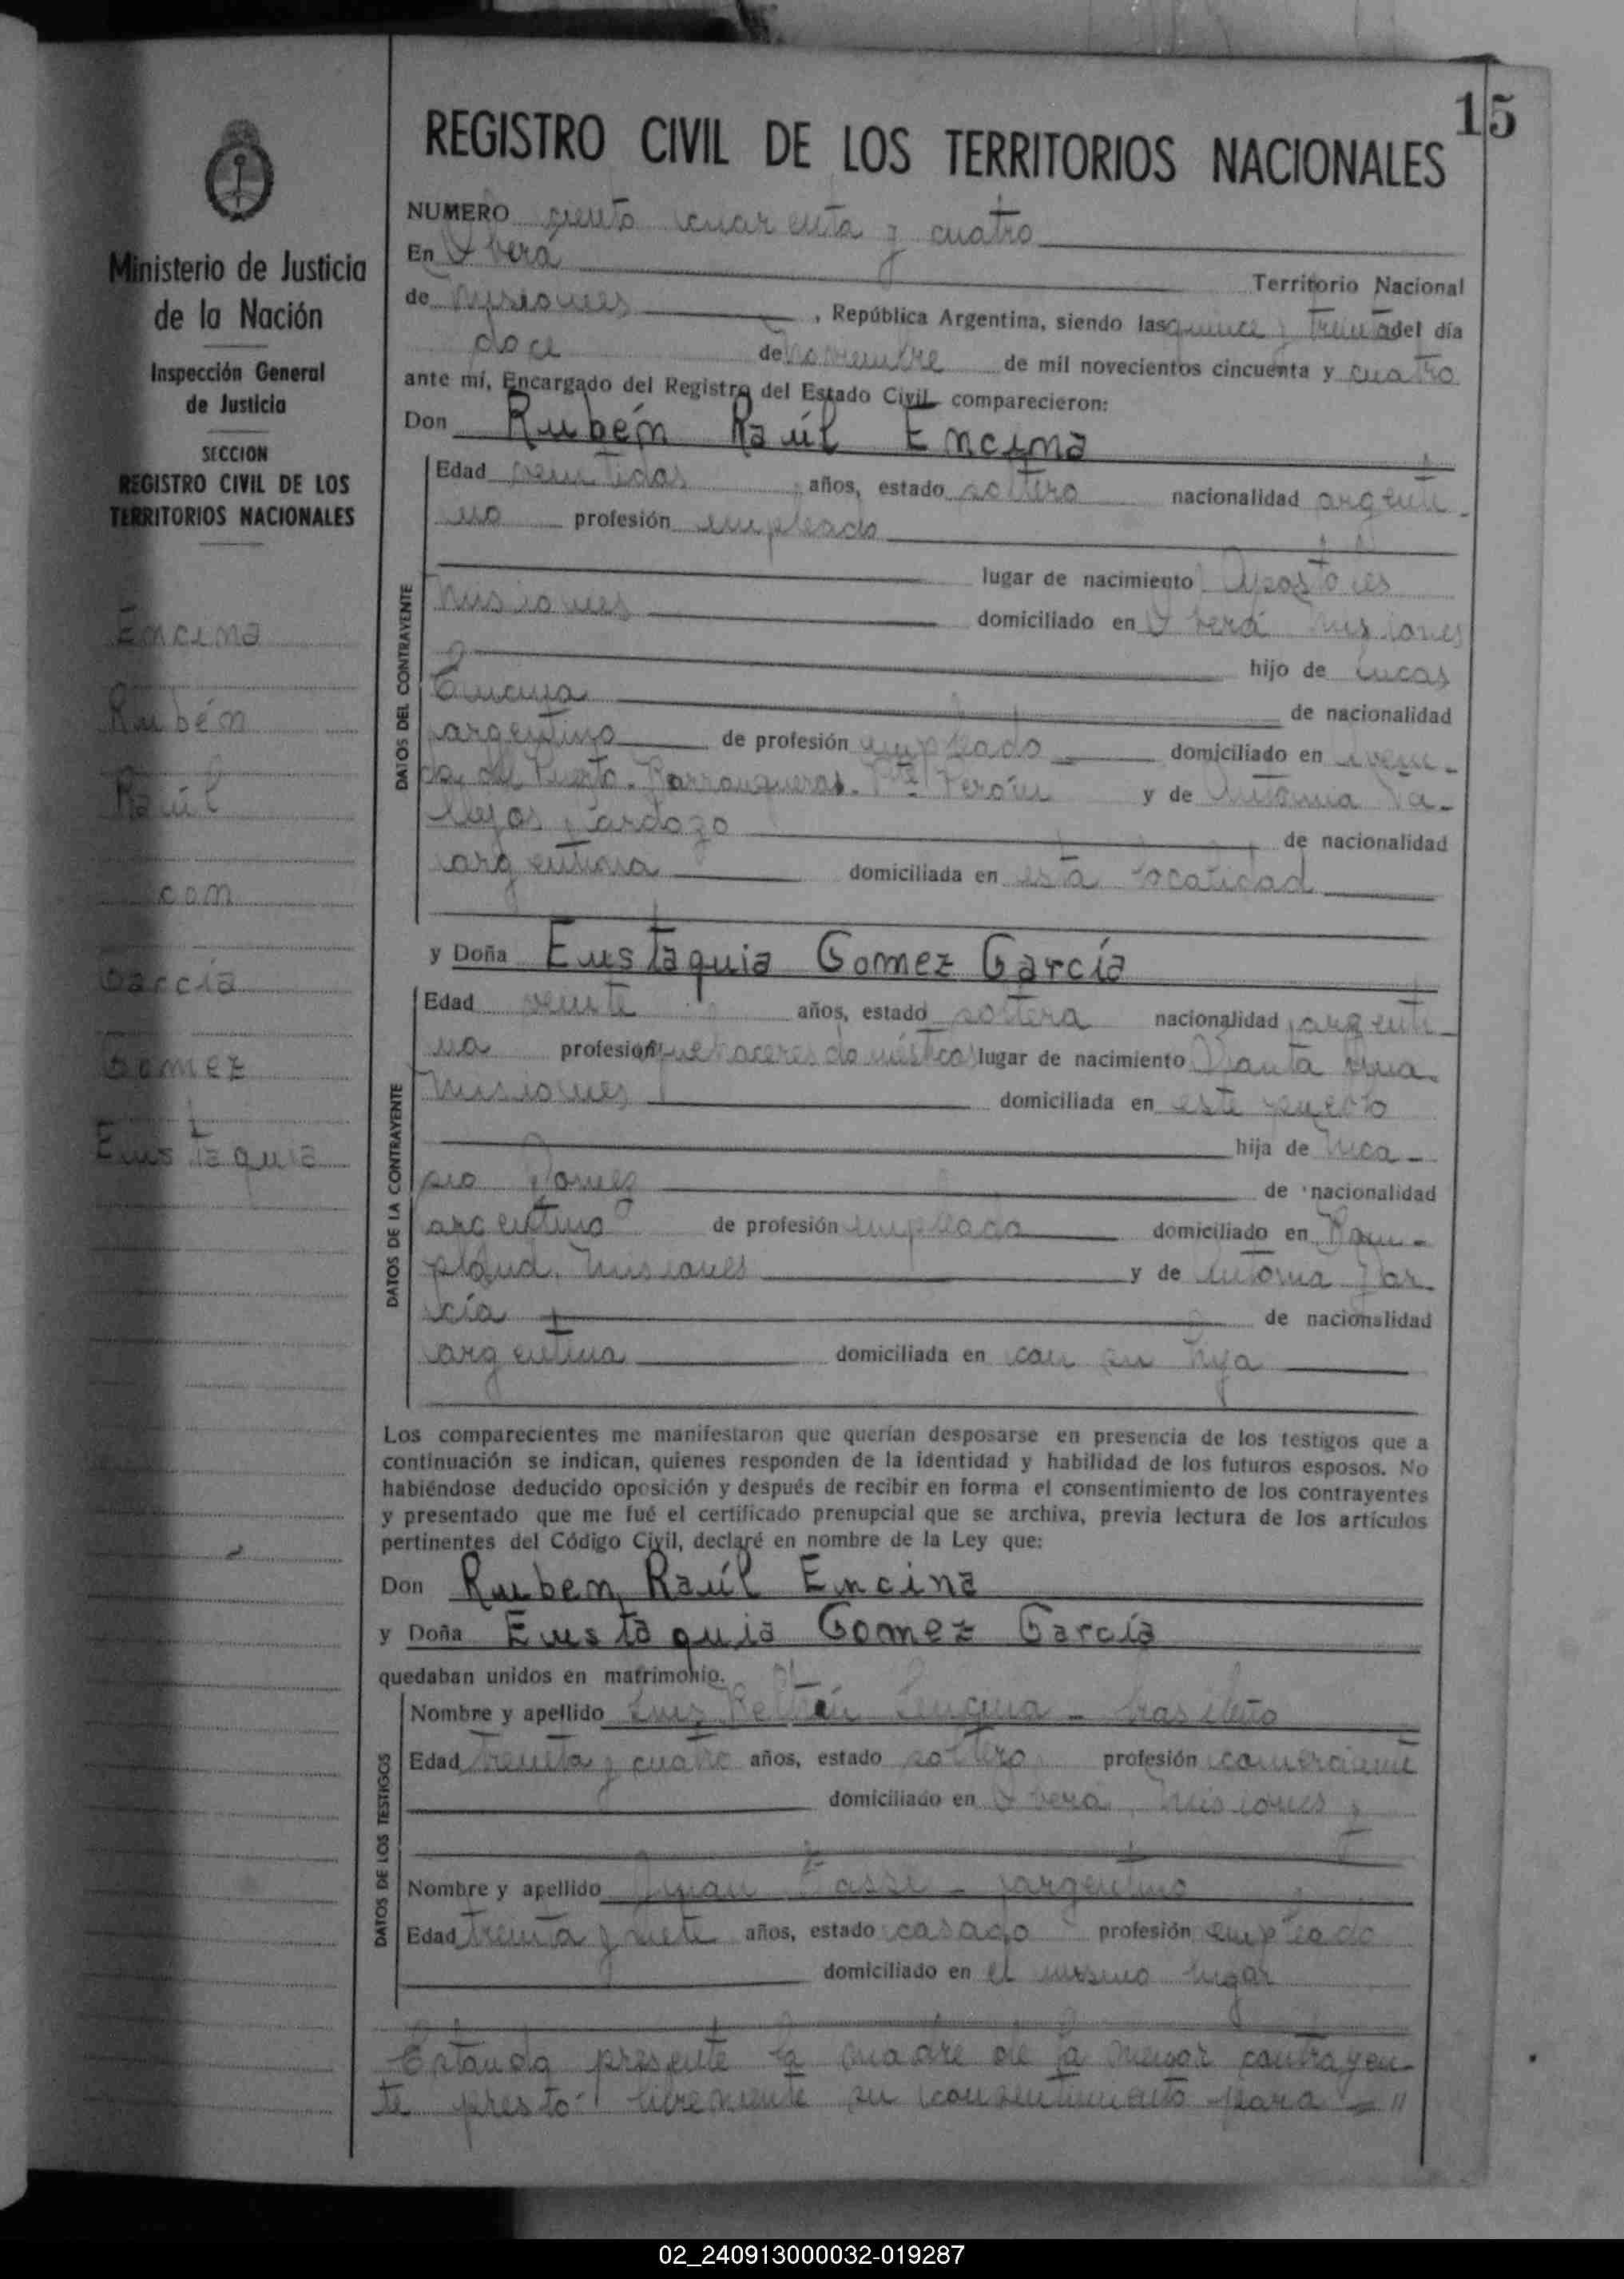 15
REGISTRO CIVIL DE LOS TERRITORIOS NACIONALES
Ministerio de Justicia
de la Nación
Inspección General
de Justicia
SECCION
REGISTRO CIVIL DE LOS
TERRITORIOS NACIONALES
Encina
Rubén
Raúl
con
García
Gomez
Eustaquia
NUMERO ciento cuarenta y cuatro
En Oberá Territorio Nacional
de Misiones, República Argentina, siendo las quince y treinta del día
doce de noviembre de mil novecientos cincuenta y cuatro
ante mí, Encargado del Registro del Estado Civil comparecieron:
Don Rubén Raúl Encina
DATOS DEL CONTRAYENTE
Edad veintidos años, estado soltero nacionalidad argenti-
no profesión empleado
lugar de nacimiento Apostoles
Misiones domiciliado en Oberá Misiones
hijo de Lucas
Encina de nacionalidad
argentino de profesión empleado domiciliado en Aveni-
da del Puerto. Barranqueras. Pte. Perón y de Antonia Va-
llejos Cardozo de nacionalidad
argentina domiciliada en esta localidad
y Doña Eustaquia Gomez García
DATOS DE LA CONTRAYENTE
Edad veinte años, estado soltera nacionalidad argenti-
na profesión quehaceres domésticos lugar de nacimiento Santa Ana.
Misiones domiciliada en este pueblo
hija de Nica-
sio Gomez de nacionalidad
argentino de profesión empleado domiciliado en Bom-
pland. Misiones y de Antonia Gar-
cía de nacionalidad
argentina domiciliada en con su hija
Los comparecientes me manifestaron que querían desposarse en presencia de los testigos que a
continuación se indican, quienes responden de la identidad y habilidad de los futuros esposos. No
habiéndose deducido oposición y después de recibir en forma el consentimiento de los contrayentes
y presentado que me fué el certificado prenupcial que se archiva, previa lectura de los artículos
pertinentes del Código Civil, declaré en nombre de la Ley que:
Don Ruben Raúl Encina
y Doña Eustaquia Gomez García
quedaban unidos en matrimonio.
DATOS DE LOS TESTIGOS
Nombre y apellido Luiz Beltrán - brasileño
Edad treinta y cuatro años, estado soltero profesión comerciante
domiciliado en Oberá, Misiones y
Nombre y apellido Juan - argentino
Edad treinta y siete años, estado casado profesión empleado
domiciliado en el mismo lugar
Estando presente la madre de la menor contrayen-
te prestó libremente su consentimiento para - "
02_240913000032-019287